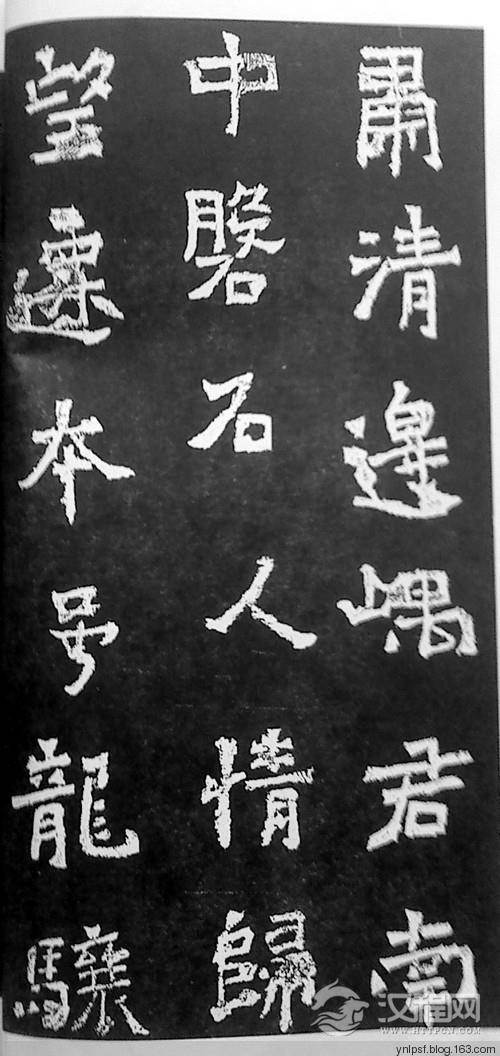 肅清邊嵎君南
中磐石人情歸
望遷本号龍驤
汉程网
HTTPCN.COM
ynlpsf.blog.163.com